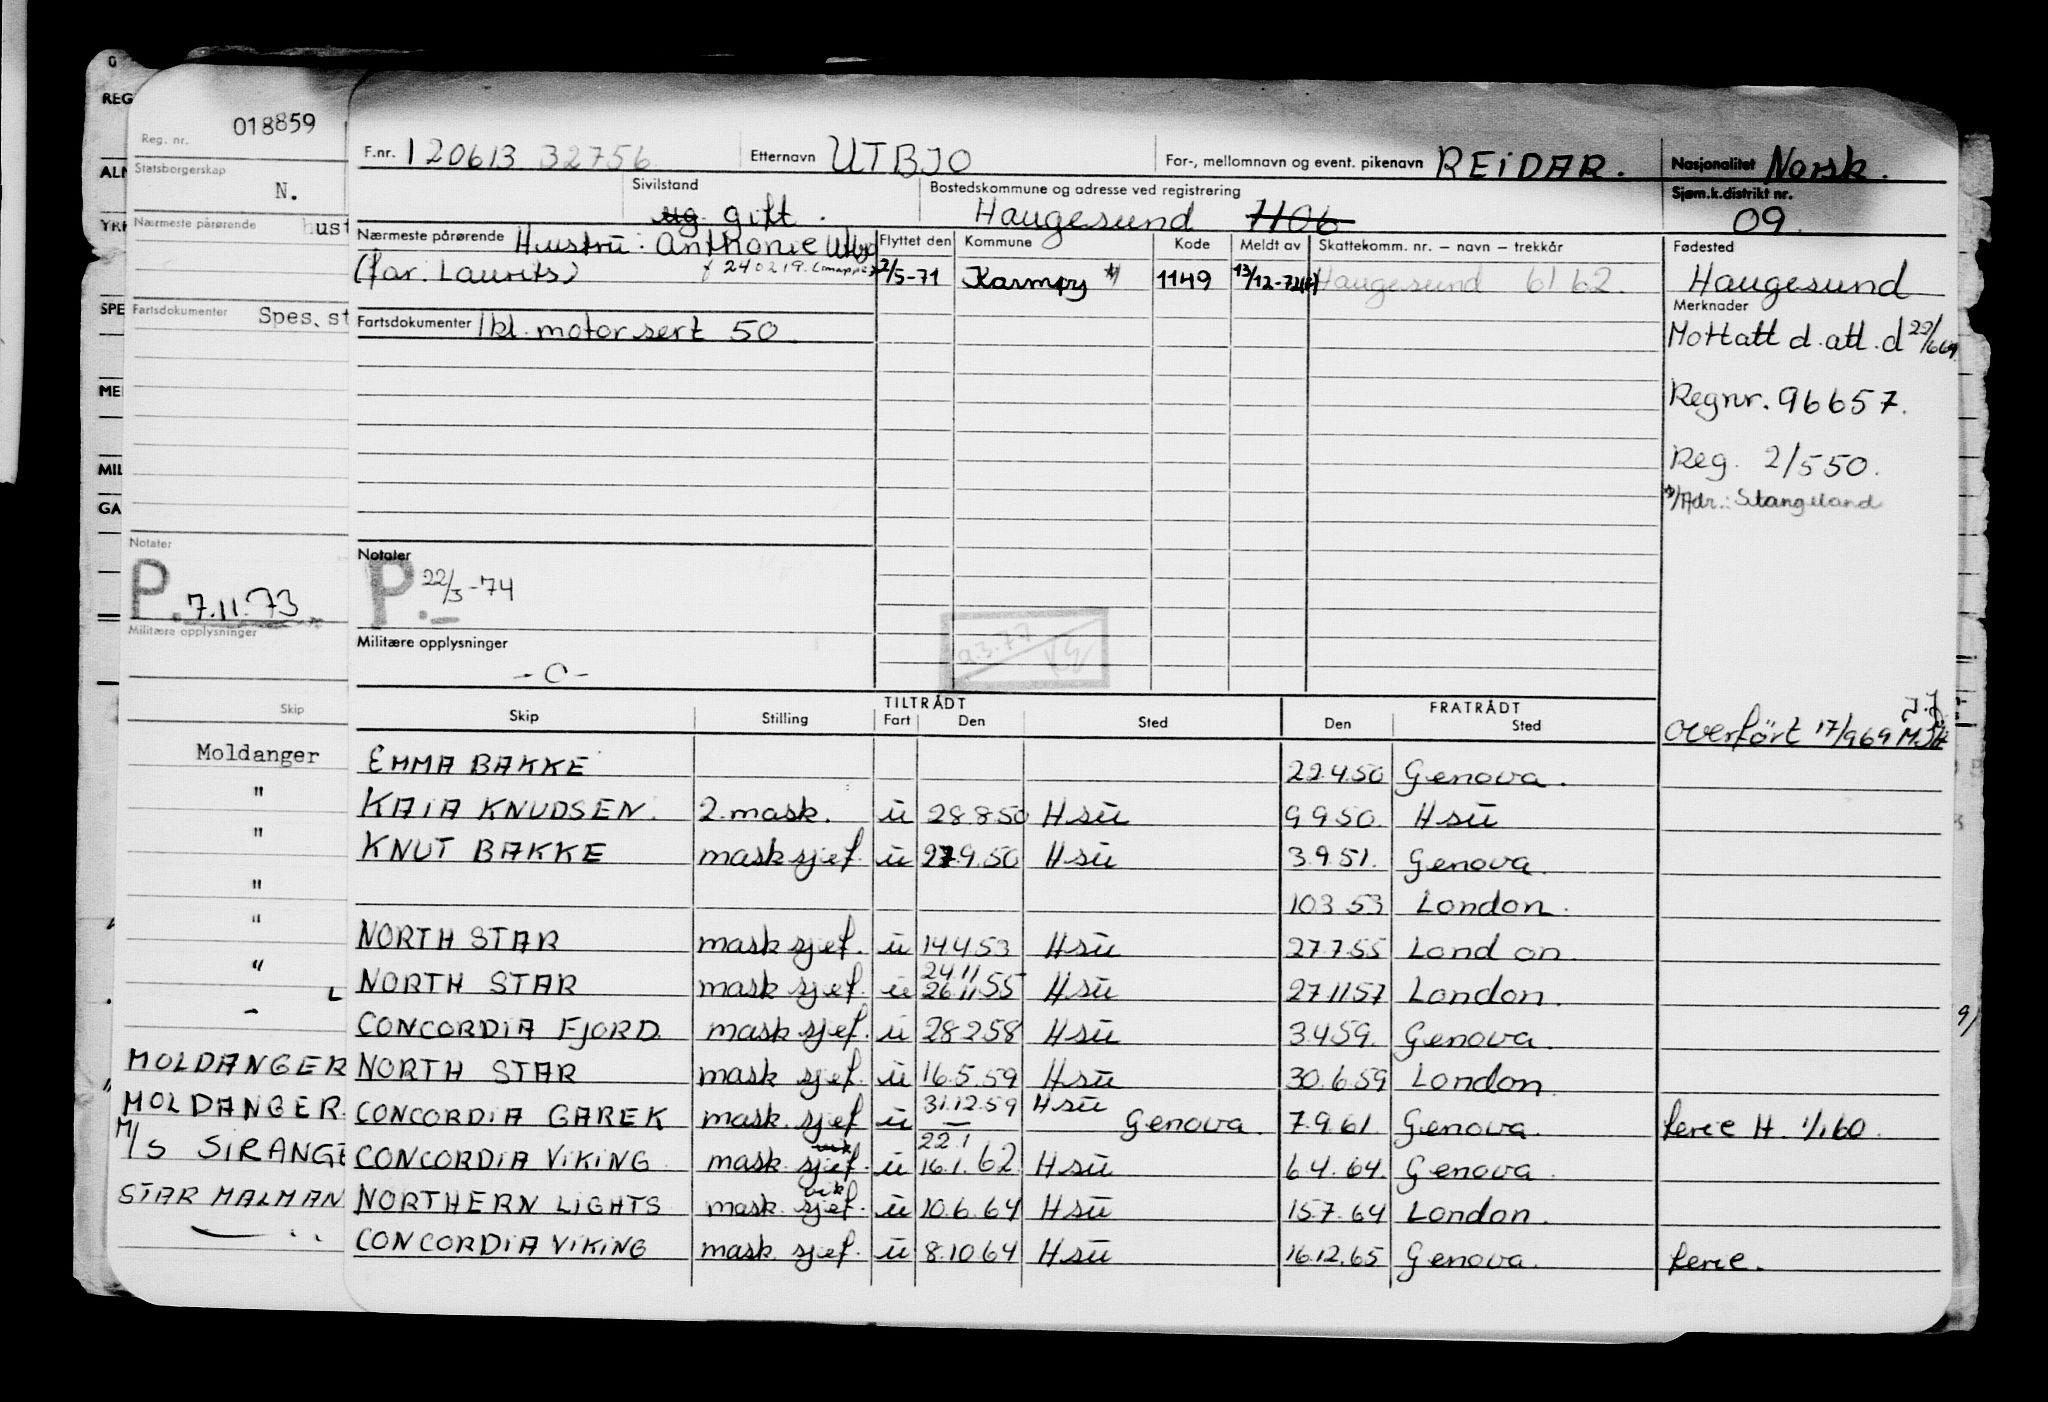 REG
ALN
YRK
SPE
ME
MIL
GA
018859
Reg. nr.
Statsborgerskap
N.
Nærmeste pårørende hust
Fartsdokumenter Spes. st
Notater
P. 7.11.73
Militære opplysninger
Skip
Moldanger
"
"
"
"
"
MOLDANGER
MOLDANGER
M/S SIRANGE
STAR MALMAN
F.nr. 120613 32756 Etternavn UTBJO For-, mellomnavn og event. pikenavn REIDAR. Nasjonalitet Norsk.
Sivilstand ug. gift. Bostedskommune og adresse ved registrering Haugesund 1106 Sjøm.k.distrikt nr. 09.
Nærmeste pårørende Hustru: Anthonie Utbjo
(far. Laurits) f 240219.
Flyttet den Kommune Kode Meldt av Skattekomm. nr. – navn – trekkår Fødested
2/5-71 Karmøy *) 1149 13/12-72 Haugesund 61 62. Haugesund
Fartsdokumenter 1 kl. motor sert 50.
Merknader
Mottatt d. att. d 22/6 69
Regnr. 96657.
Reg. 2/550.
*)/Adr.: Stangeland
Notater
P. 22/3-74
Militære opplysninger
-0-
9.3.77
overført 17/9 69
TILTRÅDT FRATRÅDT
Skip Stilling Fart Den Sted Den Sted
EMMA BAKKE 22.4.50 Genova.
KAIA KNUDSEN. 2. mask. u 28.8.50 Hsu 9.9.50. Hsu
KNUT BAKKE mask sjef. u 27.9.50 Hsu 3.9.51. Genova.
10.3.53 London.
NORTH STAR mask sjef. u 14.4.53 Hsu 27.7.55 London
24.11
NORTH STAR mask sjef. u 26.11.55 Hsu 27.11.57 London.
CONCORDIA FJORD mask sjef. u 28.2.58 Hsu 3.4.59. Genova.
NORTH STAR mask sjef. u 16.5.59 Hsu 30.6.59 London.
31.12.59 Hsu
CONCORDIA GAREK mask. sjef u — Genova. 7.9.61. Genova. ferie H. 1/1 60.
vik 22.1
CONCORDIA VIKING mask. sjef. u 16.1.62 Hsu 6.4.64. Genova.
vik
NORTHERN LIGHTS mask. sjef. u 10.6.64 Hsu 15.7.64 London.
CONCORDIA VIKING mask. sjef. u 8.10.64 Hsu 16.12.65 Genova. ferie.